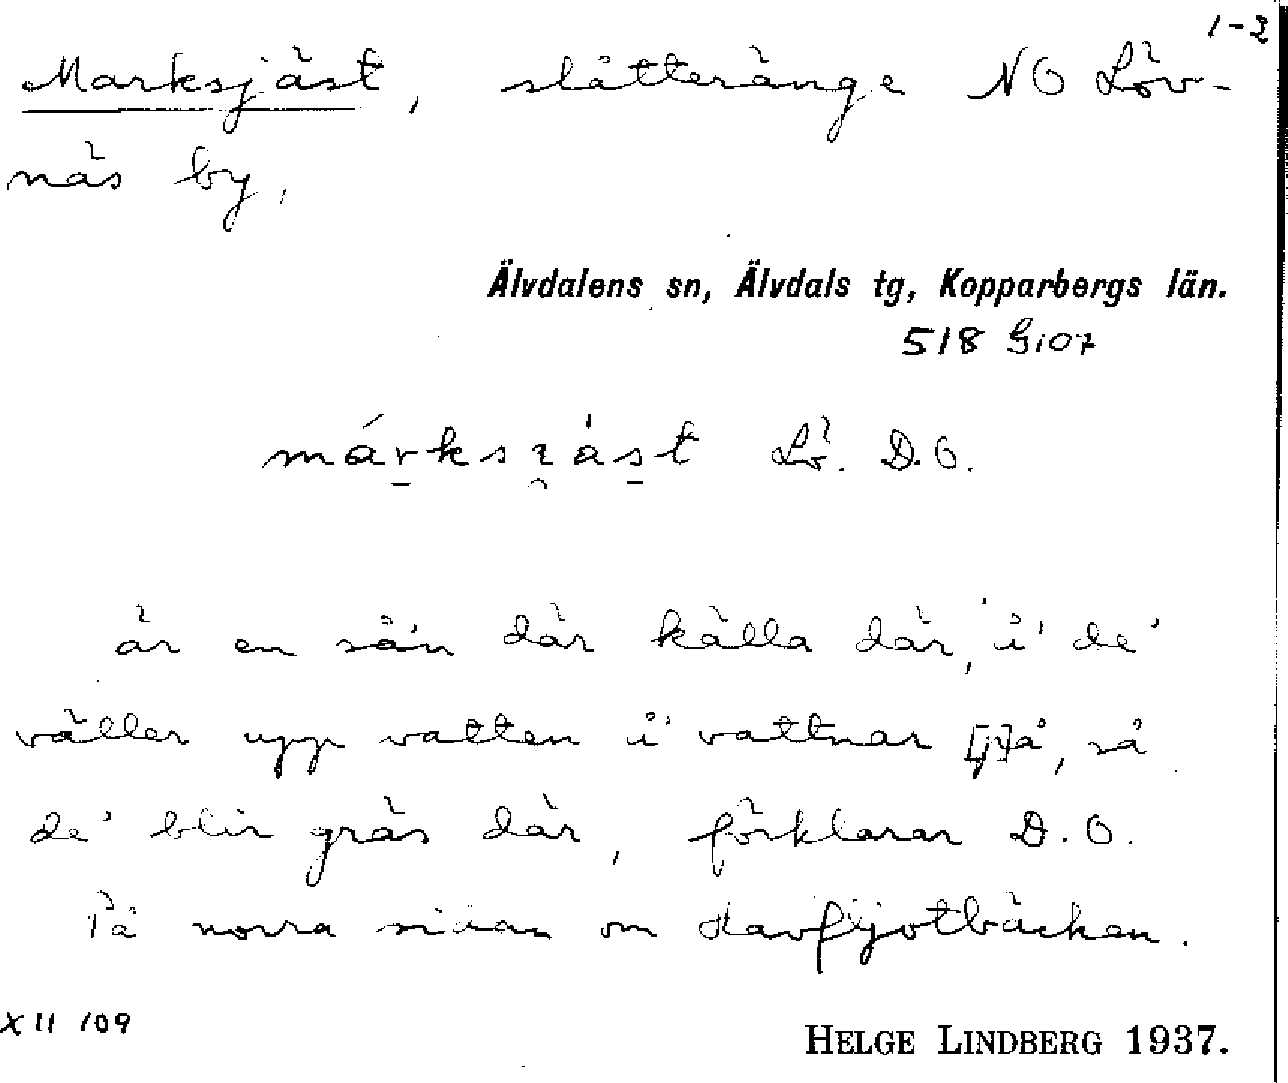 1-2
Marksjäst, slåtteränge NO Löv-
näs by,
Älvdalens sn, Älvdals tg, Kopparbergs län.
518 G107
Lö. D.O.
är en så'n där källa där, å' de'
väller upp vatten å' vattnar [p]å, så
de' blir gräs där, förklarar D.O.
På norra sidan om
XII 109
HELGE LINDBERG 1937.